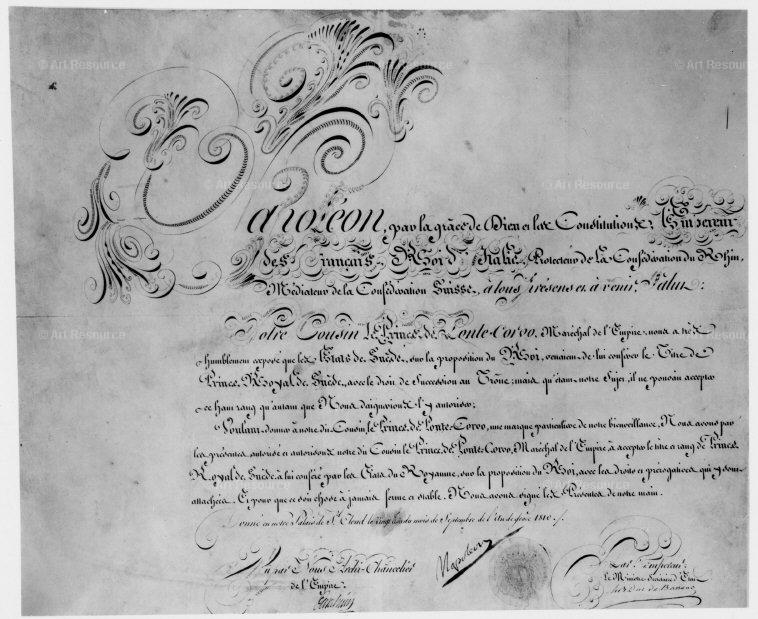 Napoléon, par la grâce de Dieu et les Constitutions, l'Empereur
des Français, Roi d'Italie, Protecteur de la Confédération du Rhin,
Médiateur de la Confédération Suisse, à tous présens et à venir, Salut:
Notre Cousin le Prince de Ponte-Corvo, Maréchal de l'Empire, nous a très
humblement exposé que les Etats de Suède, sur la proposition du Roi, venaient de lui conférer le Titre de
Prince Royal de Suède, avec le droit de Succession au Trône; mais qu'étant notre Sujet, il ne pouvait accepter
ce haut rang qu'autant que Nous daignerions l'y autoriser;
Voulant donner à notre dit Cousin, le Prince de Ponte-Corvo, une marque particulière de notre bienveillance, Nous avons par
les présentes autorisé et autorisons notre dit Cousin le Prince de Ponte-Corvo, Maréchal de l'Empire à accepter le titre et rang de Prince
Royal de Suède à lui conféré par les Etats du Royaume, sur la proposition du Roi, avec les droits et prérogatives qui y sont
attachées. Et pour que ce soit chose à jamais ferme et stable. Nous avons signé les Présentes de notre main.
Donné en notre Palais de St. Cloud le du mois de Septembre de l'An de grâce 1810.
Nous Archi-Chancelier
de l'Empire:
Napoléon
Par l'Empereur:
le Ministre Secrétaire d'Etat
Le Duc de Bassano
© Art Resource